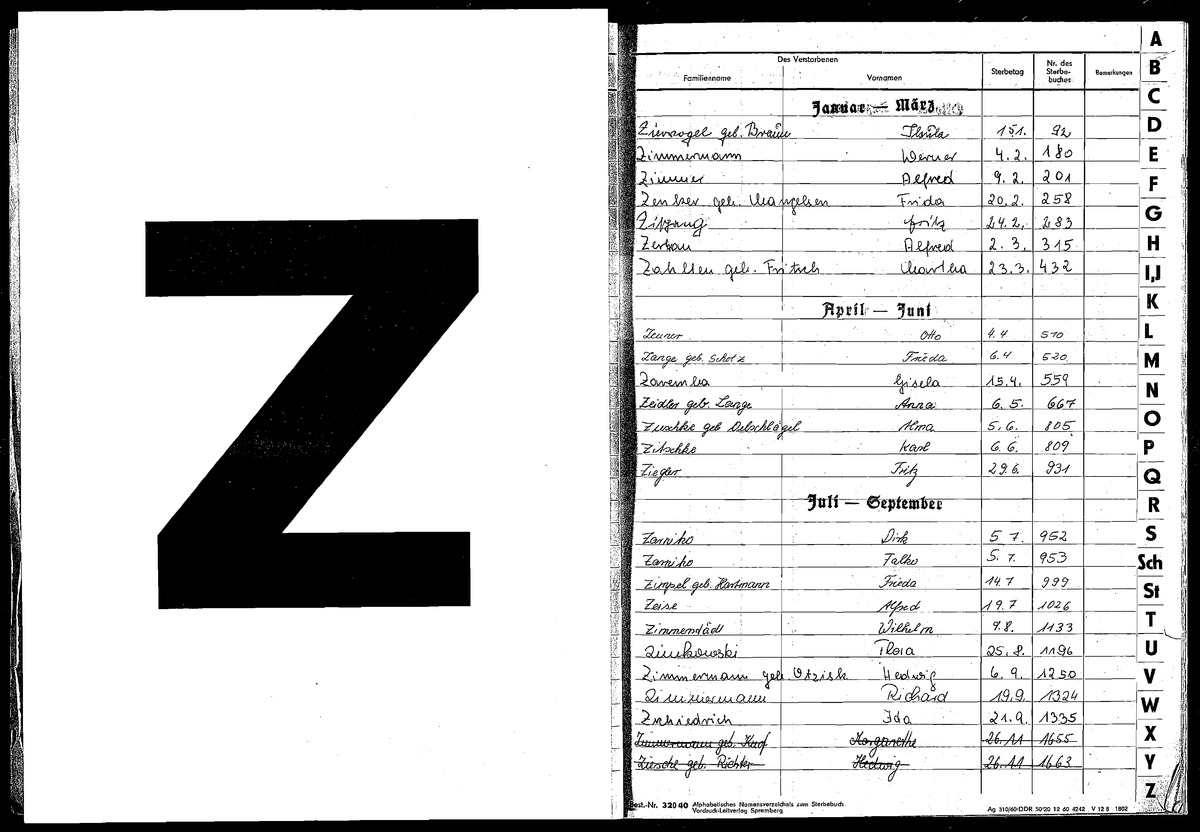 Z
Des Verstorbenen
Familienname Vornamen Sterbetag Nr. des Sterbe-buches Bemerkungen
Januar — März
Ziervogel geb. Braune 15.1. 92
Zimmermann Werner 4.2. 180
Zimmer Alfred 9.2. 201
Zenker geb. Frida 20.2. 258
Fritz 24.2. 283
Zerbau Alfred 2.3. 315
Zahlten geb. Fritsch Martha 23.3. 432
April — Juni
Zeuner Otto 4.4 510
Zange geb. Scholz Frieda 6.4 520
Zaremba Gisela 15.4. 559
Zeidler geb. Lange Anna 6.5. 667
Zuschke geb Oelschlägel Alma 5.6. 805
Zitschke Karl 6.6. 809
Ziegler Fritz 29.6. 931
Juli — September
Zarniko Dirk 5 7. 952
Zarniko Falko 5.7. 953
Zimpel geb. Hartmann Frieda 14.7 999
Zeise Alfred 19.7 1026
Zimmerstädt Wilhelm 9.8. 1133
Zimkowski Flora 25.8. 1196
Zimmermann geb. Otzisk Hedwig 6.9. 1250
Zimmermann Richard 19.9. 1324
Zschiedrich Ida 21.9. 1335
Zimmermann geb. Margarethe 26.11 1655
Ziesche geb. Richter Hedwig 26.11 1663
Best.-Nr. 320 40 Alphabetisches Namensverzeichnis zum Sterbebuch
Vordruck-Leitverlag Spremberg
Ag 310/60 DDR 50 20 12 60 4242 V 12 8 1802
A
B
C
D
E
F
G
H
I,J
K
L
M
N
O
P
Q
R
S
Sch
St
T
U
V
W
X
Y
Z